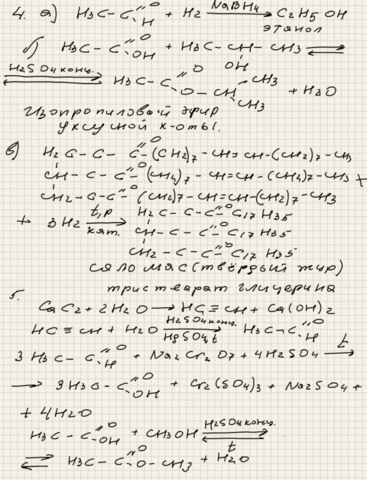 4. а) H3C-C(=O)H + H2 —NaBH4→ C2H5OH
этанол
б) H3C-C(=O)OH + H3C-CH(OH)-CH3 ⇌
⇌ H2SO4 конц. H3C-C(=O)O-CH(CH3)CH3 + H2O
Изопропиловый эфир
уксусной к-оты.
в) H2C-C-C(=O)-(CH2)7-CH=CH-(CH2)7-CH3
CH-C-C(=O)(CH2)7-CH=CH-(CH2)7-CH3 +
CH2-C-C(=O)(CH2)7-CH=CH-(CH2)7-CH3
+ 3H2 —t,p кат.→ H2C-C-C(=O)C17H35
CH-C-C(=O)C17H35
CH2-C-C(=O)C17H35
саломас (твёрдый жир)
тристеарат глицерина
5.
CaC2 + 2H2O → HC≡CH + Ca(OH)2
HC≡CH + H2O —H2SO4 конц. HgSO4, t→ H3C-C(=O)H
3H3C-C(=O)H + Na2Cr2O7 + 4H2SO4 —t→
→ 3H3C-C(=O)OH + Cr2(SO4)3 + Na2SO4 +
+ 4H2O
H3C-C(=O)OH + CH3OH ⇌ H2SO4 конц. t
⇌ H3C-C(=O)O-CH3 + H2O